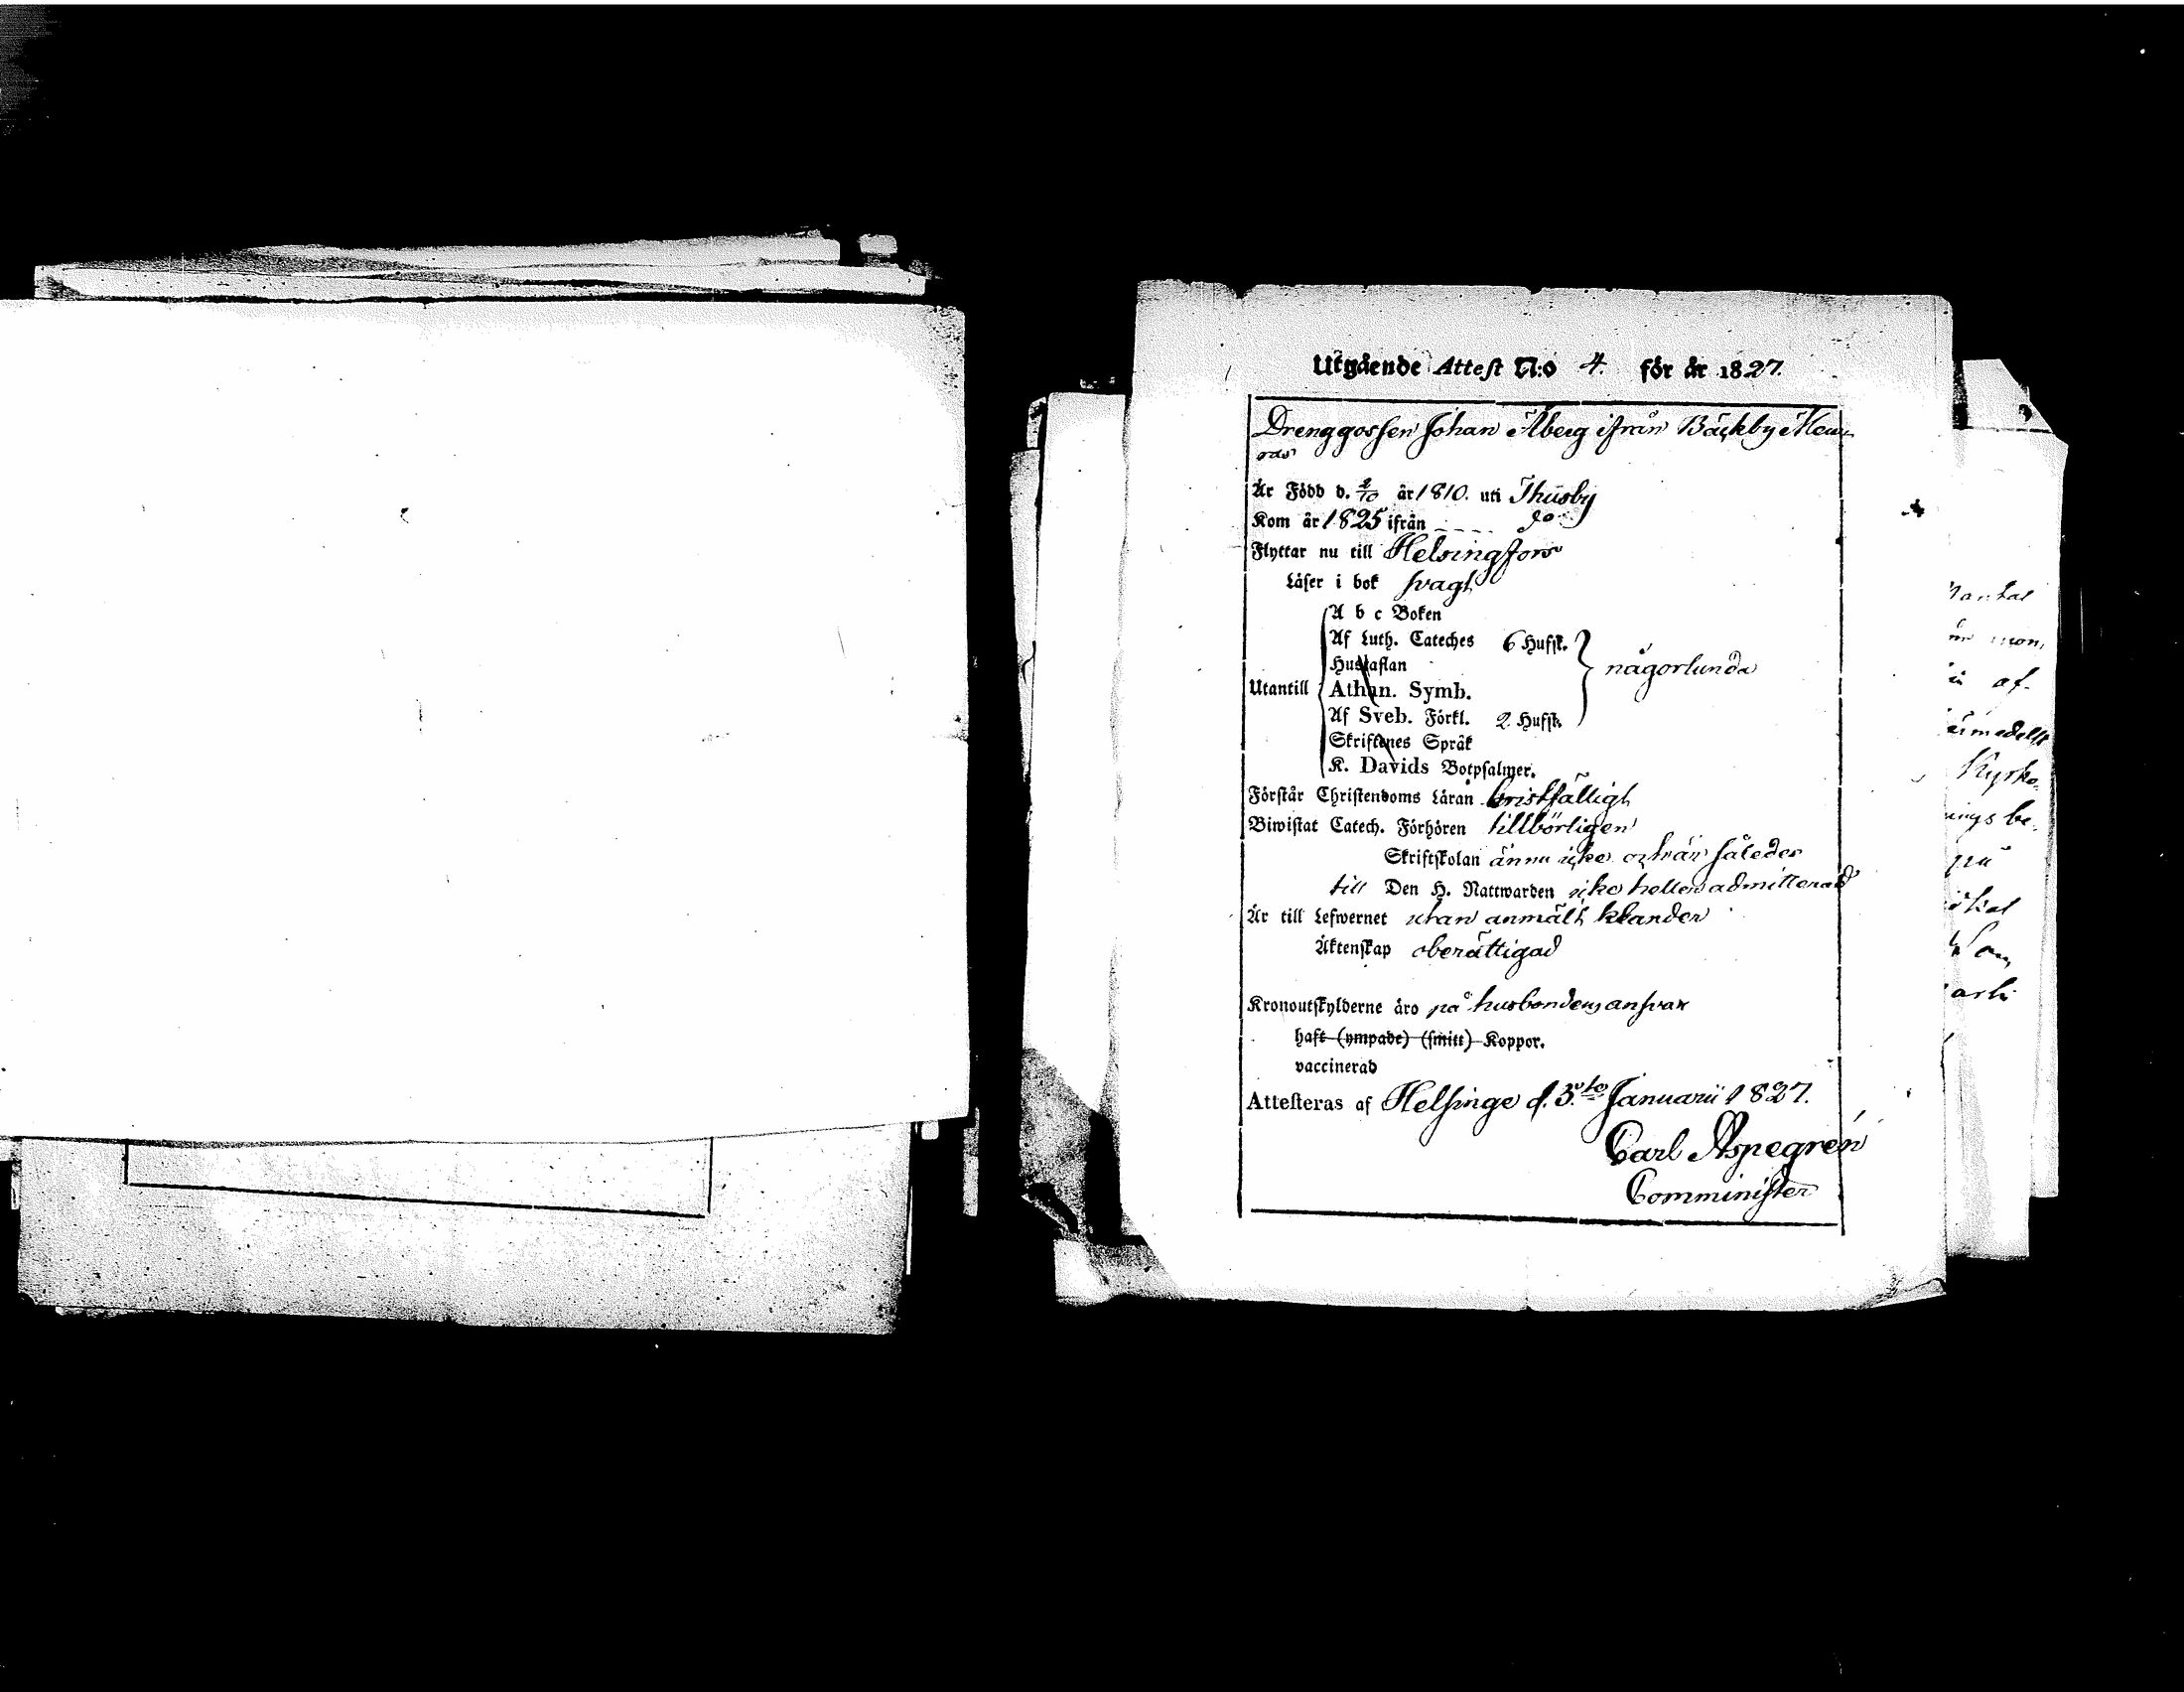 Utgående Attest N:o 4. för år 1827.
Drenggossen Johan Åberg ifrån Bäckby
Är Född d. 2/10 år 1810. uti Thusby
Kom år 1825 ifrån - - - - do
Flyttar nu till Helsingfors
Läser i bok svagt
A b c Boken
Af Luth. Cateches 6 Hufst.
Hustaflan
någorlunda
Utantill
Athan. Symb.
Af Sveb. Förkl. 2. Hufst.
Skriftenes Språk
K. Davids Botpsalmer.
Förstår Christendoms Läran bristfälligt
Biwistat Catech. Förhören tillbörligen
Skriftskolan ännu icke och är således
till Den H. Nattwarden icke heller admitterad
Är till Lefwernet utan anmält klander
Äktenskap oberättigad
Kronoutskylderne äro på husbondens ansvar
haft (ympade) (smitt) Koppor.
vaccinerad
Attesteras af Helsinge d. 3.to Januarii 1827.
Carl Aspegren
Comminister
mon,
af-
ärmedelst
Kyrko-
ings be-
på